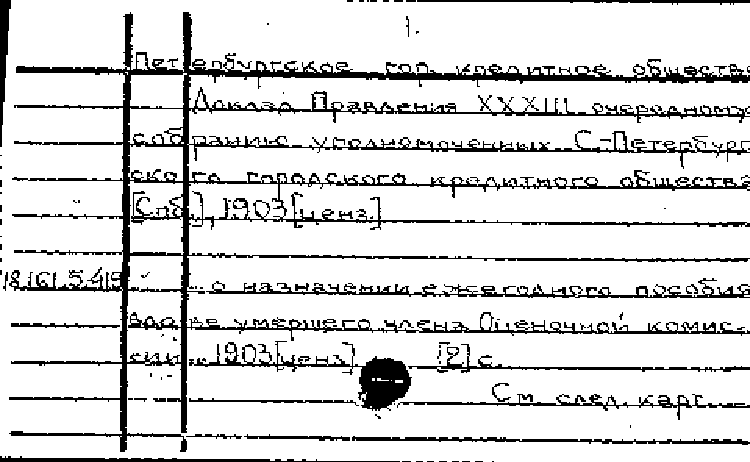 1.
Петербургское гор. кредитное общество
Доклад Правления XXXIII очередному
собранию уполномоченных С.-Петербург
ского городского кредитного общества
[Спб.], 1903 [ценз.]
18.161.5.419 ... о назначении ежегодного пособия
вдове умершего члена Оценочной комис-
сии... 1903 [ценз] [2] с.
См. след. карт.